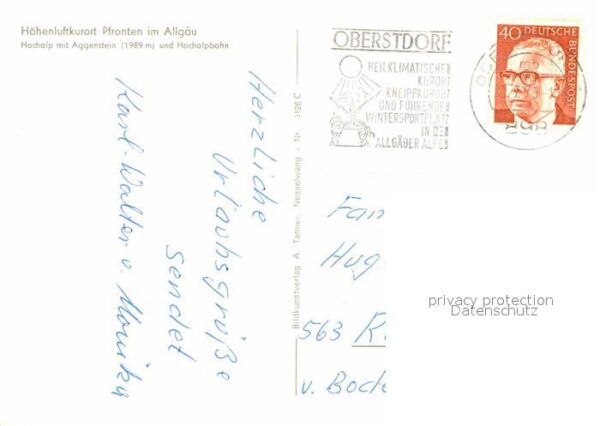 Höhenluftkurort Pfronten im Allgäu
Hochalp mit Aggenstein (1989 m) und Hochalpbahn
Herzliche
Urlaubsgrüße
sendet
Karl-Walter u. Monika
Bildkunstverlag A. Tanner, Nesselwang - Nr. 5126 C
OBERSTDORF
HEILKLIMATISCHER
KURORT
KNEIPPKURORT
UND FÜHRENDER
WINTERSPORTPLATZ
IN DEN
ALLGÄUER ALPEN
40
DEUTSCHE
BUNDESPOST
898
Fam
Hug
563 R
v. Bode
privacy protection
Datenschutz